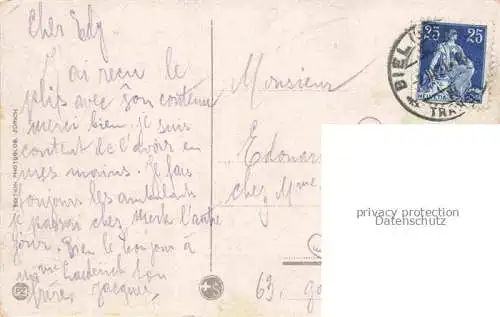 Cher Edy
J'ai reçu le
plis avec son contenu
merci bien. Je suis
content de l'avoir en
mes mains. Je fais
toujours les ambulants
je passerai chez Merk l'autre
jour. Bien le bonjour à
Mme ton
frère Jacques
EDITION PHOTOGLOB, ZÜRICH
PZ
Monsieur
Edouar
chez Mme
63,
25 25
HELVETIA
BIEL
TRA
privacy protection
Datenschutz